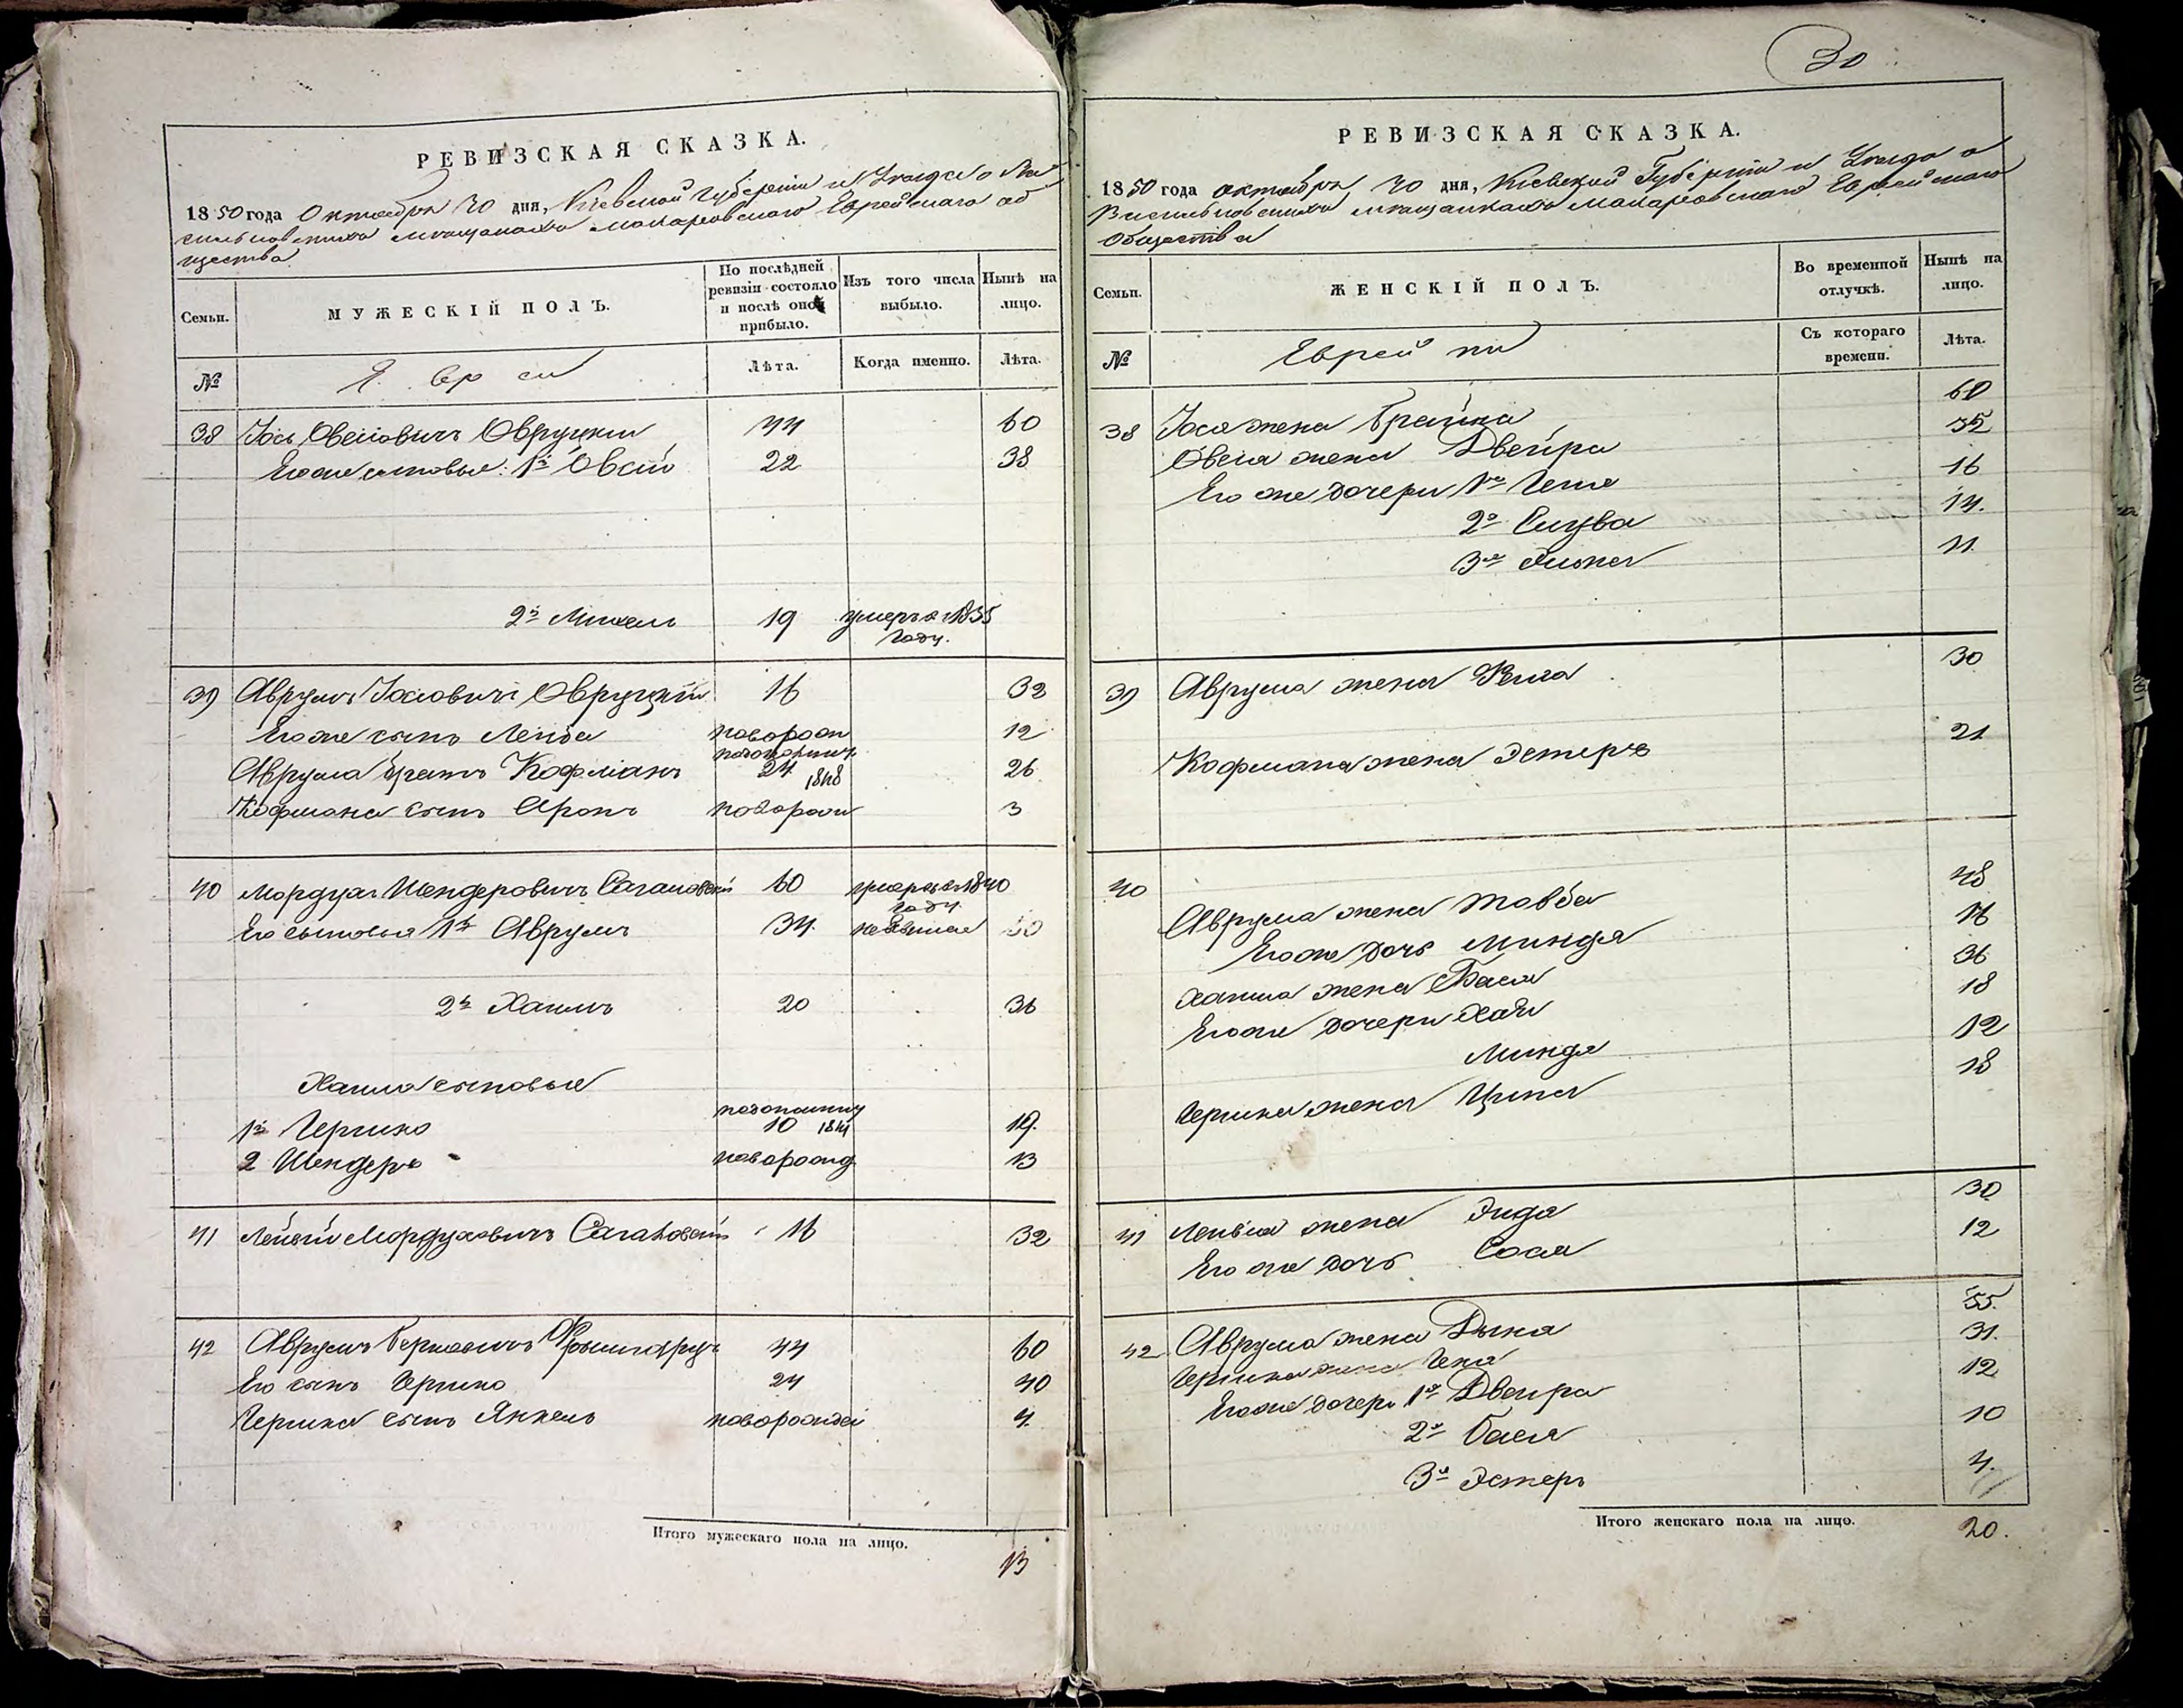 РЕВИЗСКАЯ СКАЗКА.
1850 года Октября 30 дня, Кіевской Губерніи и Уезда о Ва
сильковскихъ мещанахъ Макаровскаго Еврейскаго об
щества
Семьи.
МУЖЕСКІЙ ПОЛЪ.
По послѣдней ревизіи состояло и послѣ оной прибыло.
Изъ того числа выбыло.
Нынѣ на лицо.
№
Евреи
Лѣта.
Когда именно.
Лѣта.
38 Іось Овсіовичъ Овруцкій 44 60
Его же сыновья: 1й Овсій 22 38
2й Михель 19 умеръ в 1835
году.
39 Аврумъ Іосіовичъ Овруцкій 16 32
Его же сынъ Лейба новорож 12
Аврума братъ Кофманъ 24 1848 26
Кофмана сынъ Аронъ новорож 3
40 Мордухъ Шендеровичъ Сагановскій 60 умеръ в 1840
году.
Его сыновья 1й Аврумъ 34 50
2й Хаимъ 20 36
Хаима сыновья
1й Гершко 10 19.
2 Шендеръ новорожд 13
41 Мордуховичъ Сагановскій 16 32
42 Аврумъ Берковичъ 44 60
Его сынъ Гершко 24 40
Гершка сынъ Янкель новорожден 4.
Итого мужескаго пола на лицо.
13
30
РЕВИЗСКАЯ СКАЗКА.
1850 года октября 30 дня, Кіевской Губерніи и Уезда о
Васильковскихъ мещанахъ Макаровскаго Еврейскаго
общества
Семьи.
ЖЕНСКІЙ ПОЛЪ.
Во временной отлучкѣ.
Нынѣ на лицо.
№
Еврейки
Съ котораго времени.
Лѣта.
38 Іося жена Брайна 60
Овсія жена Двейра 35
Его же дочери 1я 16
2я 14.
3я 11.
39 Аврума жена 30
Кофмана жена Эстеръ 21
40 Аврума жена Товба 48
Его же дочь Миндя 16
Хаима жена Бася 36
Его же дочери Хая 18
Миндя 12
Гершка жена Ципа 18
41 жена Эйдя 30
Его же дочь Сося 12
42 Аврума жена Дына 55.
Гершка жена 31.
Его же дочери 1я Двейра 12
2я Бася 10
3я Эстеръ 4.
Итого женскаго пола на лицо.
20.